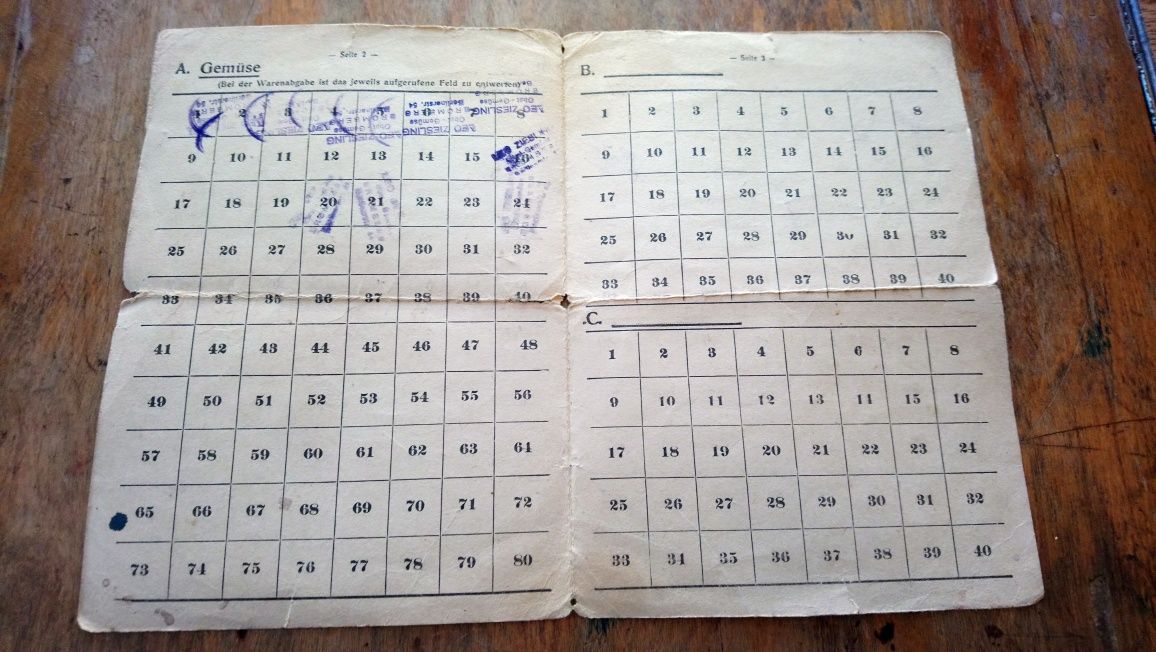 — Seite 2 —
A. Gemüse
(Bei der Warenabgabe ist das jeweils aufgerufene Feld zu entwerten)
1 2 3 4 5 6 7 8
9 10 11 12 13 14 15 16
17 18 19 20 21 22 23 24
25 26 27 28 29 30 31 32
33 34 35 36 37 38 39 40
41 42 43 44 45 46 47 48
49 50 51 52 53 54 55 56
57 58 59 60 61 62 63 64
65 66 67 68 69 70 71 72
73 74 75 76 77 78 79 80
LEO ZIESLING
Obst - Gemüse
BROMBERG
Berlinerstr. 54
— Seite 3 —
B.
1 2 3 4 5 6 7 8
9 10 11 12 13 14 15 16
17 18 19 20 21 22 23 24
25 26 27 28 29 30 31 32
33 34 35 36 37 38 39 40
.C.
1 2 3 4 5 6 7 8
9 10 11 12 13 14 15 16
17 18 19 20 21 22 23 24
25 26 27 28 29 30 31 32
33 34 35 36 37 38 39 40